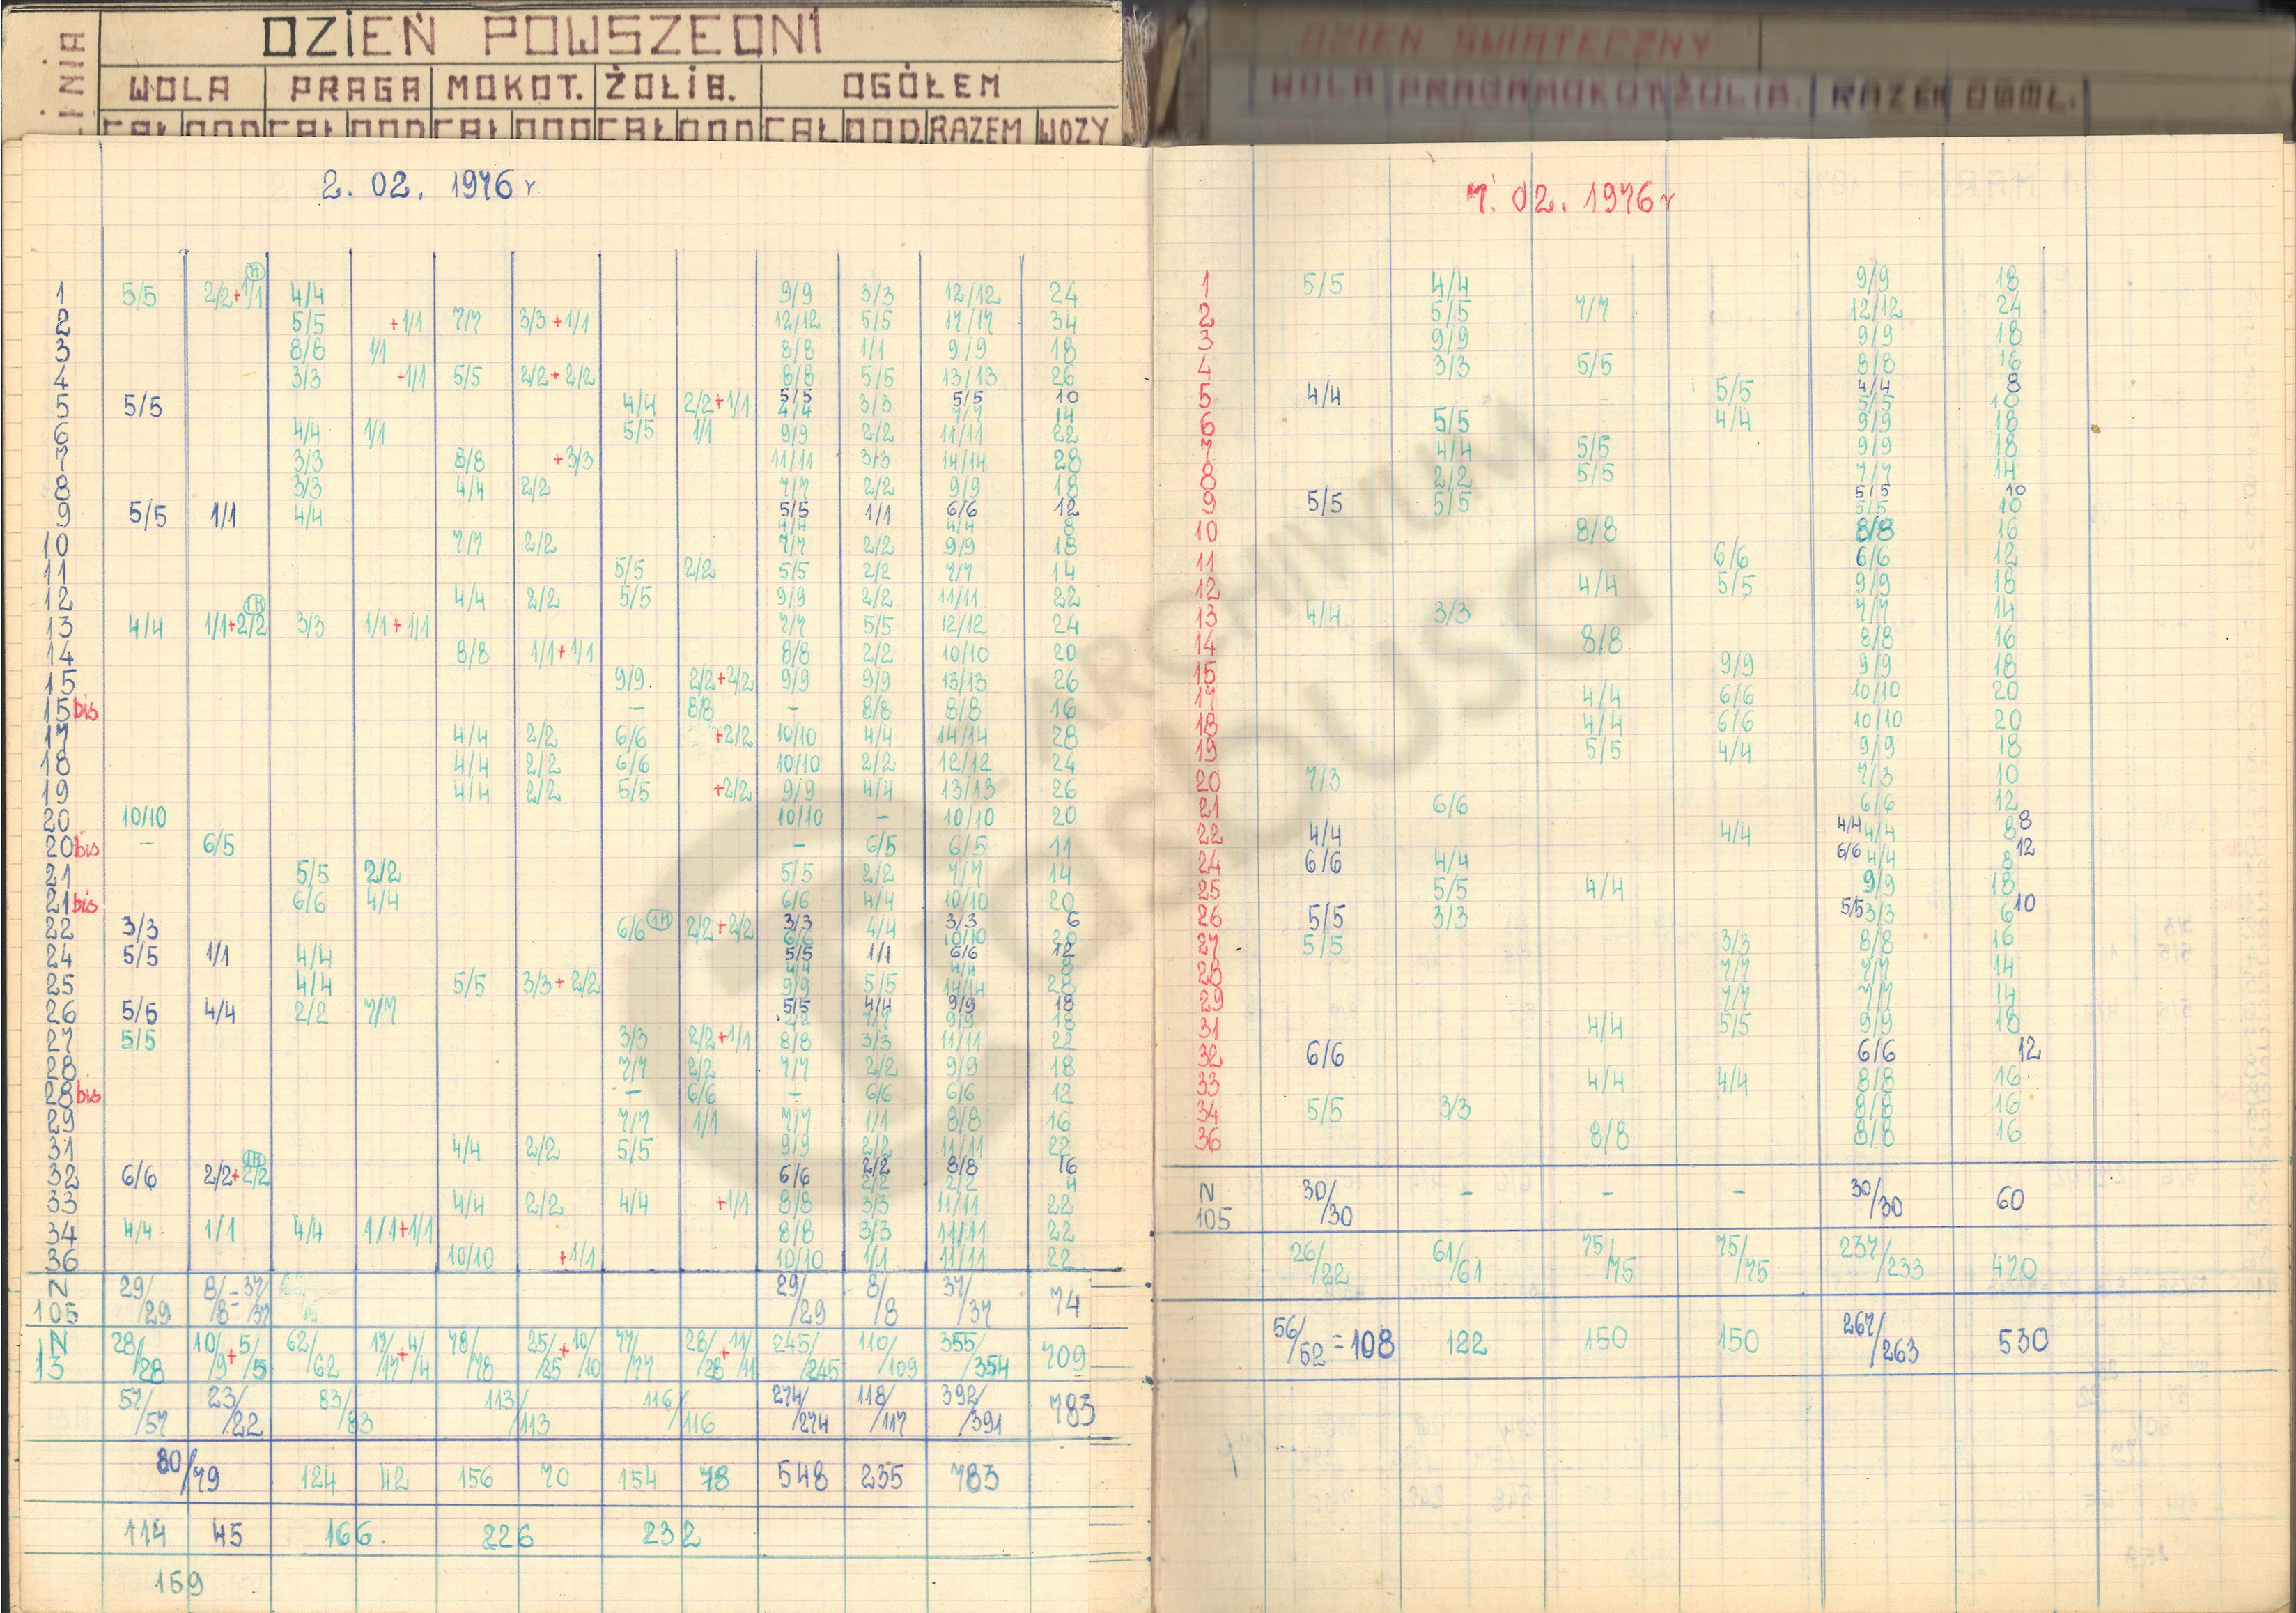 LINIA DZIEŃ POWSZEDNI
WOLA PRAGA MOKOT. ŻOLIB. OGÓŁEM
CAŁ DOD CAŁ DOD CAŁ DOD CAŁ DOD CAŁ DOD. RAZEM WOZY
2. 02. 1976 r.
1 5/5 2/2+1/1 4/4 9/9 3/3 12/12 24
2 5/5 +1/1 7/7 3/3+1/1 12/12 5/5 17/17 34
3 8/8 1/1 8/8 1/1 9/9 18
4 3/3 +1/1 5/5 2/2+2/2 8/8 5/5 13/13 26
5 5/5 4/4 2/2+1/1 5/5 5/5 10
4/4 3/3 7/7 14
6 4/4 1/1 5/5 1/1 9/9 2/2 11/11 22
7 3/3 8/8 +3/3 11/11 3/3 14/14 28
8 3/3 4/4 2/2 7/7 2/2 9/9 18
9 5/5 1/1 4/4 5/5 1/1 6/6 12
4/4 4/4 8
10 7/7 2/2 7/7 2/2 9/9 18
11 5/5 2/2 5/5 2/2 7/7 14
12 4/4 2/2 5/5 9/9 2/2 11/11 22
13 4/4 1/1+2/2 3/3 1/1+1/1 7/7 5/5 12/12 24
14 8/8 1/1+1/1 8/8 2/2 10/10 20
15 9/9 2/2+2/2 9/9 9/9 13/13 26
15bis – 8/8 – 8/8 8/8 16
17 4/4 2/2 6/6 +2/2 10/10 4/4 14/14 28
18 4/4 2/2 6/6 10/10 2/2 12/12 24
19 4/4 2/2 5/5 +2/2 9/9 4/4 13/13 26
20 10/10 10/10 – 10/10 20
20bis – 6/5 – 6/5 6/5 11
21 5/5 2/2 5/5 2/2 7/7 14
21bis 6/6 4/4 6/6 4/4 10/10 20
22 3/3 6/6 1H 2/2+2/2 3/3 4/4 3/3 6
6/6 10/10 20
24 5/5 1/1 4/4 5/5 1/1 6/6 12
4/4 4/4 8
25 4/4 5/5 3/3+2/2 9/9 5/5 14/14 28
26 5/5 4/4 2/2 7/7 5/5 4/4 9/9 18
2/2 7/7 9/9 18
27 5/5 3/3 2/2+1/1 8/8 3/3 11/11 22
28 7/7 2/2 7/7 2/2 9/9 18
28bis – 6/6 – 6/6 6/6 12
29 7/7 1/1 7/7 1/1 8/8 16
31 4/4 2/2 5/5 9/9 2/2 11/11 22
32 6/6 2/2+2/2 6/6 2/2 8/8 16
2/2 2/2 4
33 4/4 2/2 4/4 +1/1 8/8 3/3 11/11 22
34 4/4 1/1 4/4 1/1+1/1 8/8 3/3 11/11 22
36 10/10 +1/1 10/10 1/1 11/11 22
N 105 29/29 8/8 = 37/37 29/29 8/8 37/37 74
N 13 28/28 10/9+5/5 62/62 17/17+4/4 78/78 25/25+10/10 77/77 28/28+11/11 245/245 110/109 355/354 709
57/57 23/22 83/83 113/113 116/116 274/274 118/117 392/391 783
80/79 124 42 156 70 154 78 548 235 783
114 45 166. 226 232
159
DZIEŃ ŚWIĄTECZNY
WOLA PRAGA MOKOT ŻOLIB. RAZEM OGÓŁ.
7. 02. 1976 r
1 5/5 4/4 9/9 18
2 5/5 7/7 12/12 24
3 9/9 9/9 18
4 3/3 5/5 8/8 16
5 4/4 5/5 4/4 8
5/5 10
6 5/5 4/4 9/9 18
7 4/4 5/5 9/9 18
8 2/2 5/5 7/7 14
9 5/5 5/5 5/5 10
5/5 10
10 8/8 8/8 16
11 6/6 6/6 12
12 4/4 5/5 9/9 18
13 4/4 3/3 7/7 14
14 8/8 8/8 16
15 9/9 9/9 18
17 4/4 6/6 10/10 20
18 4/4 6/6 10/10 20
19 5/5 4/4 9/9 18
20 7/3 7/3 10
21 6/6 6/6 12
22 4/4 4/4 4/4 4/4 8 8
24 6/6 4/4 6/6 4/4 8 12
25 5/5 4/4 9/9 18
26 5/5 3/3 5/5 3/3 6 10
27 5/5 3/3 8/8 16
28 7/7 7/7 14
29 7/7 7/7 14
31 4/4 5/5 9/9 18
32 6/6 6/6 12
33 4/4 4/4 8/8 16
34 5/5 3/3 8/8 16
36 8/8 8/8 16
N 105 30/30 – – – 30/30 60
26/22 61/61 75/75 75/75 237/233 470
56/52 = 108 122 150 150 267/263 530
© ARCHIWUM
TRASBUSA